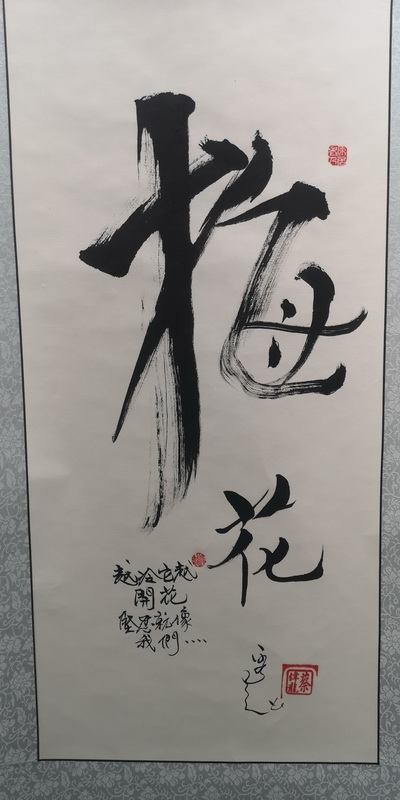 梅
花
越冷它越
開花
堅忍就像
我們....